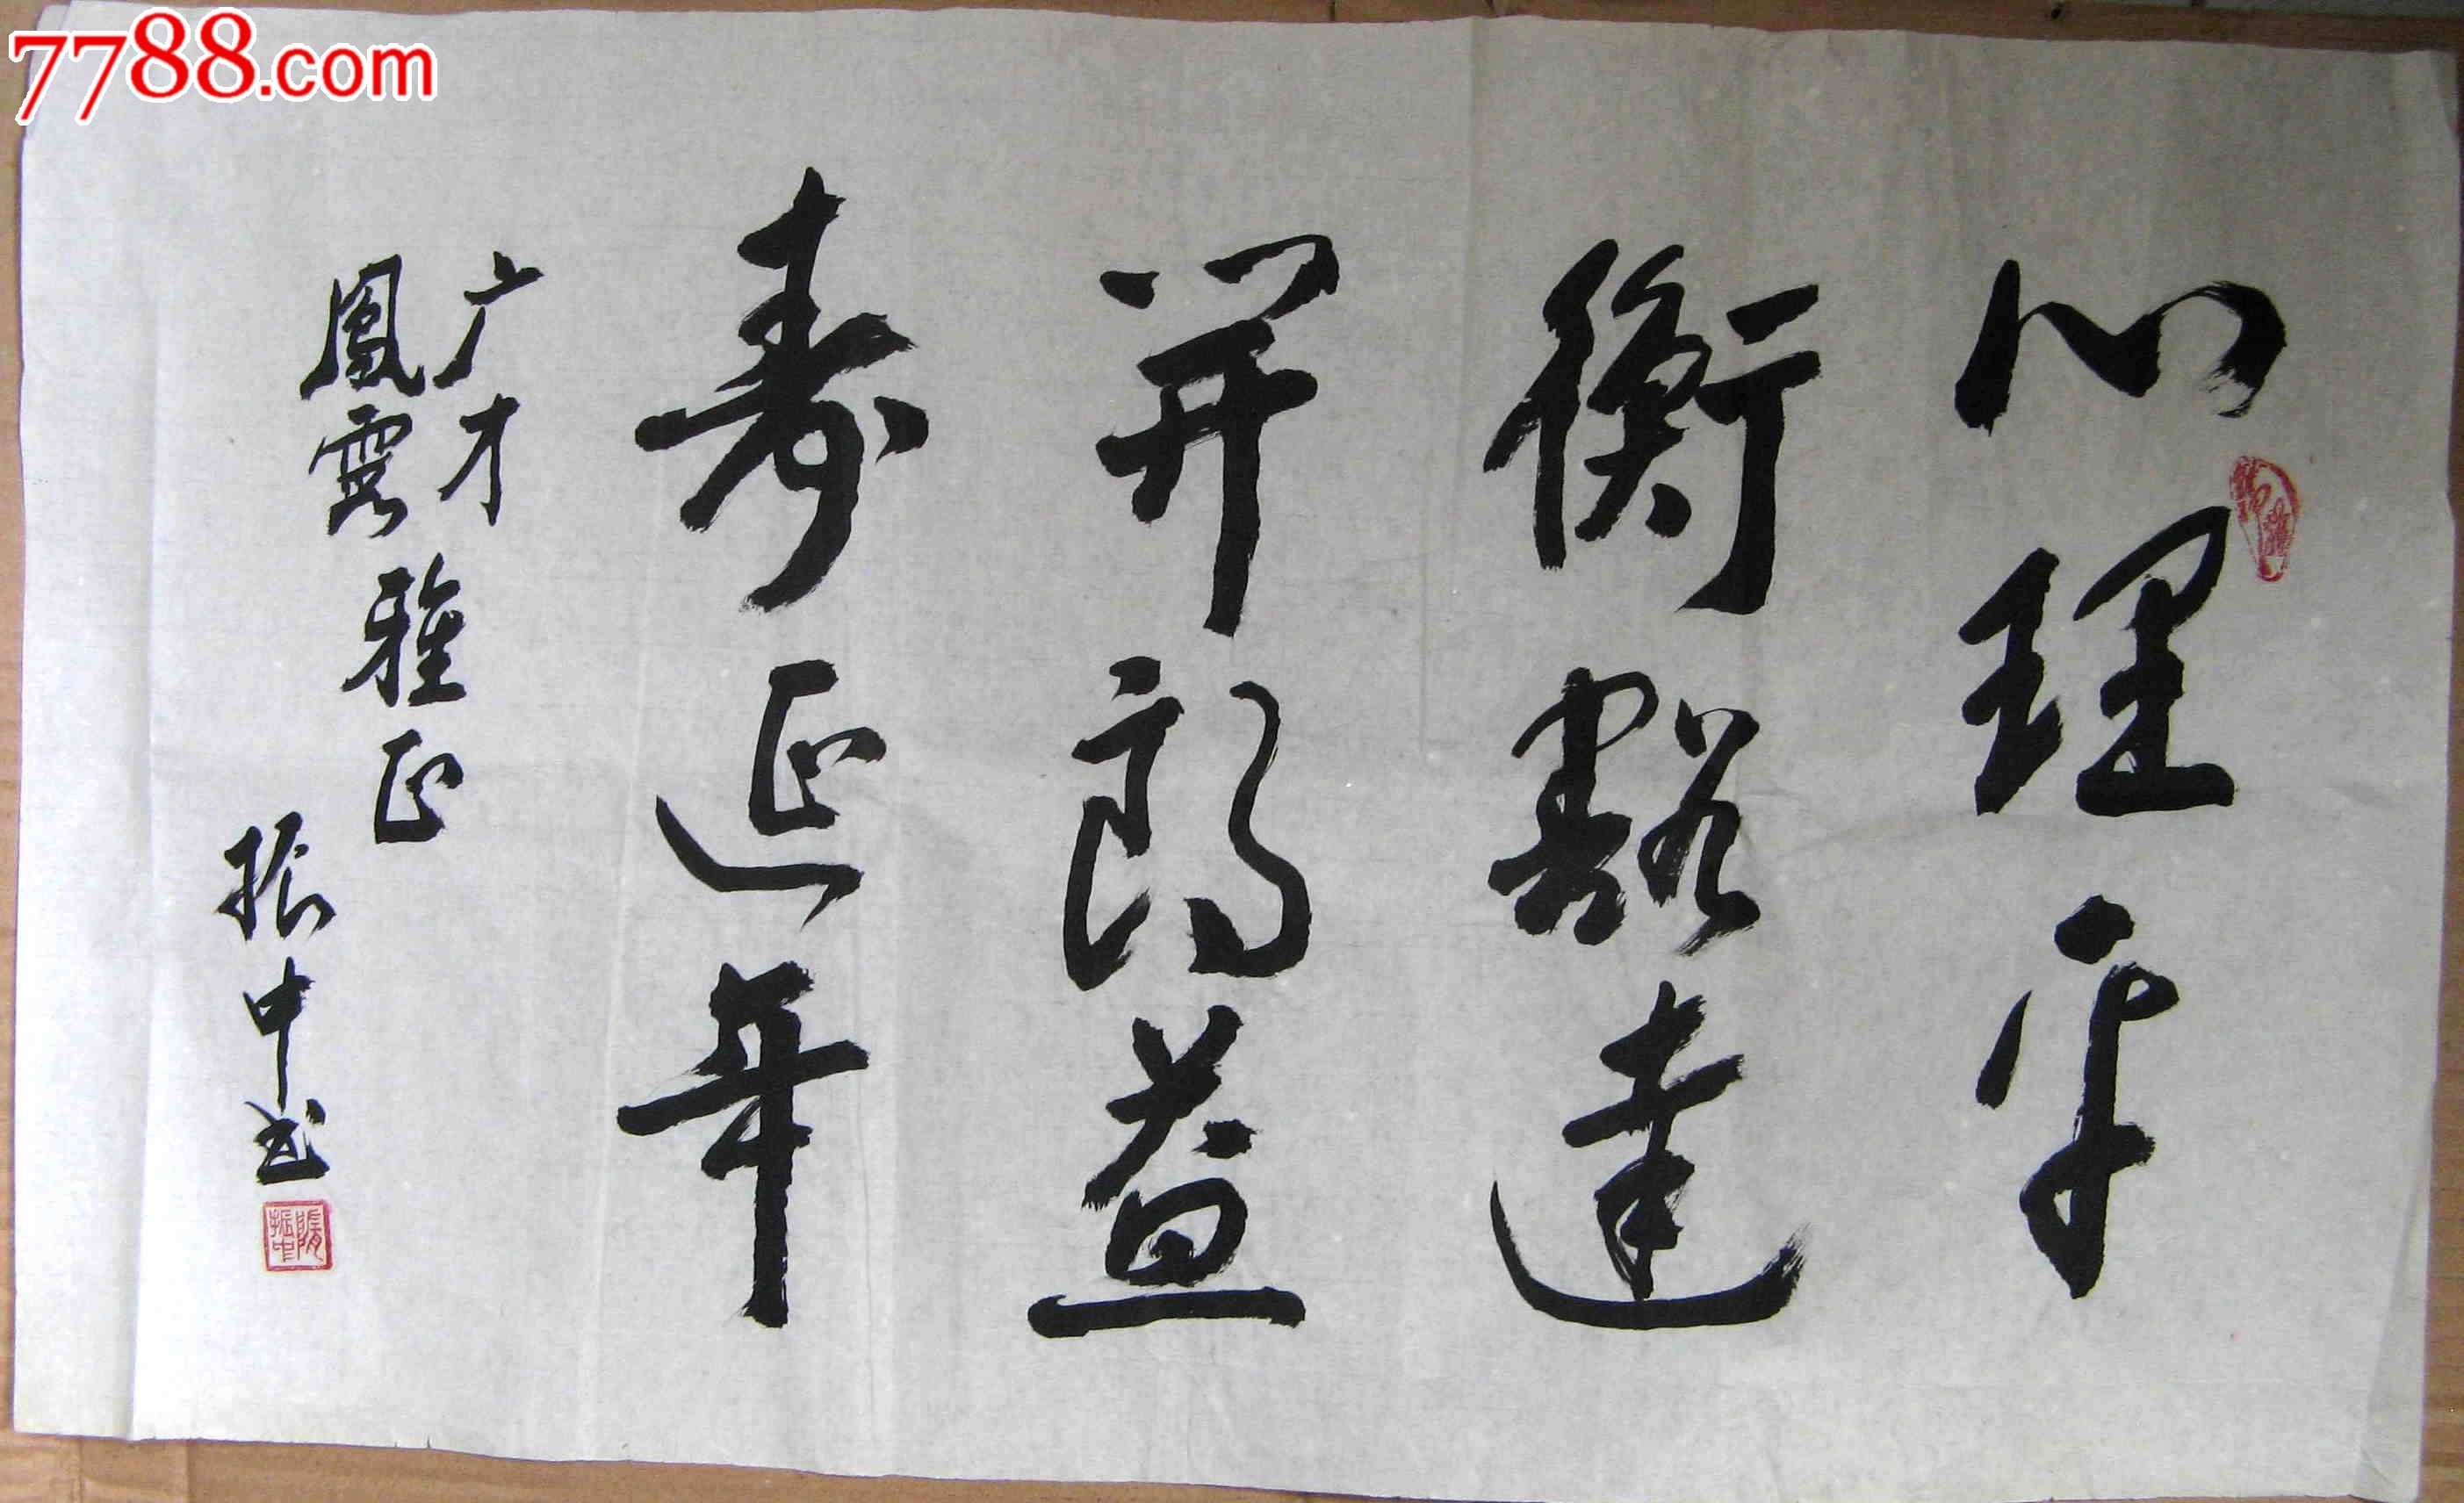 7788.com
心理平
衡豁達
开朗益
寿延年
广才
鳳雲雅正
振中书
隋振中